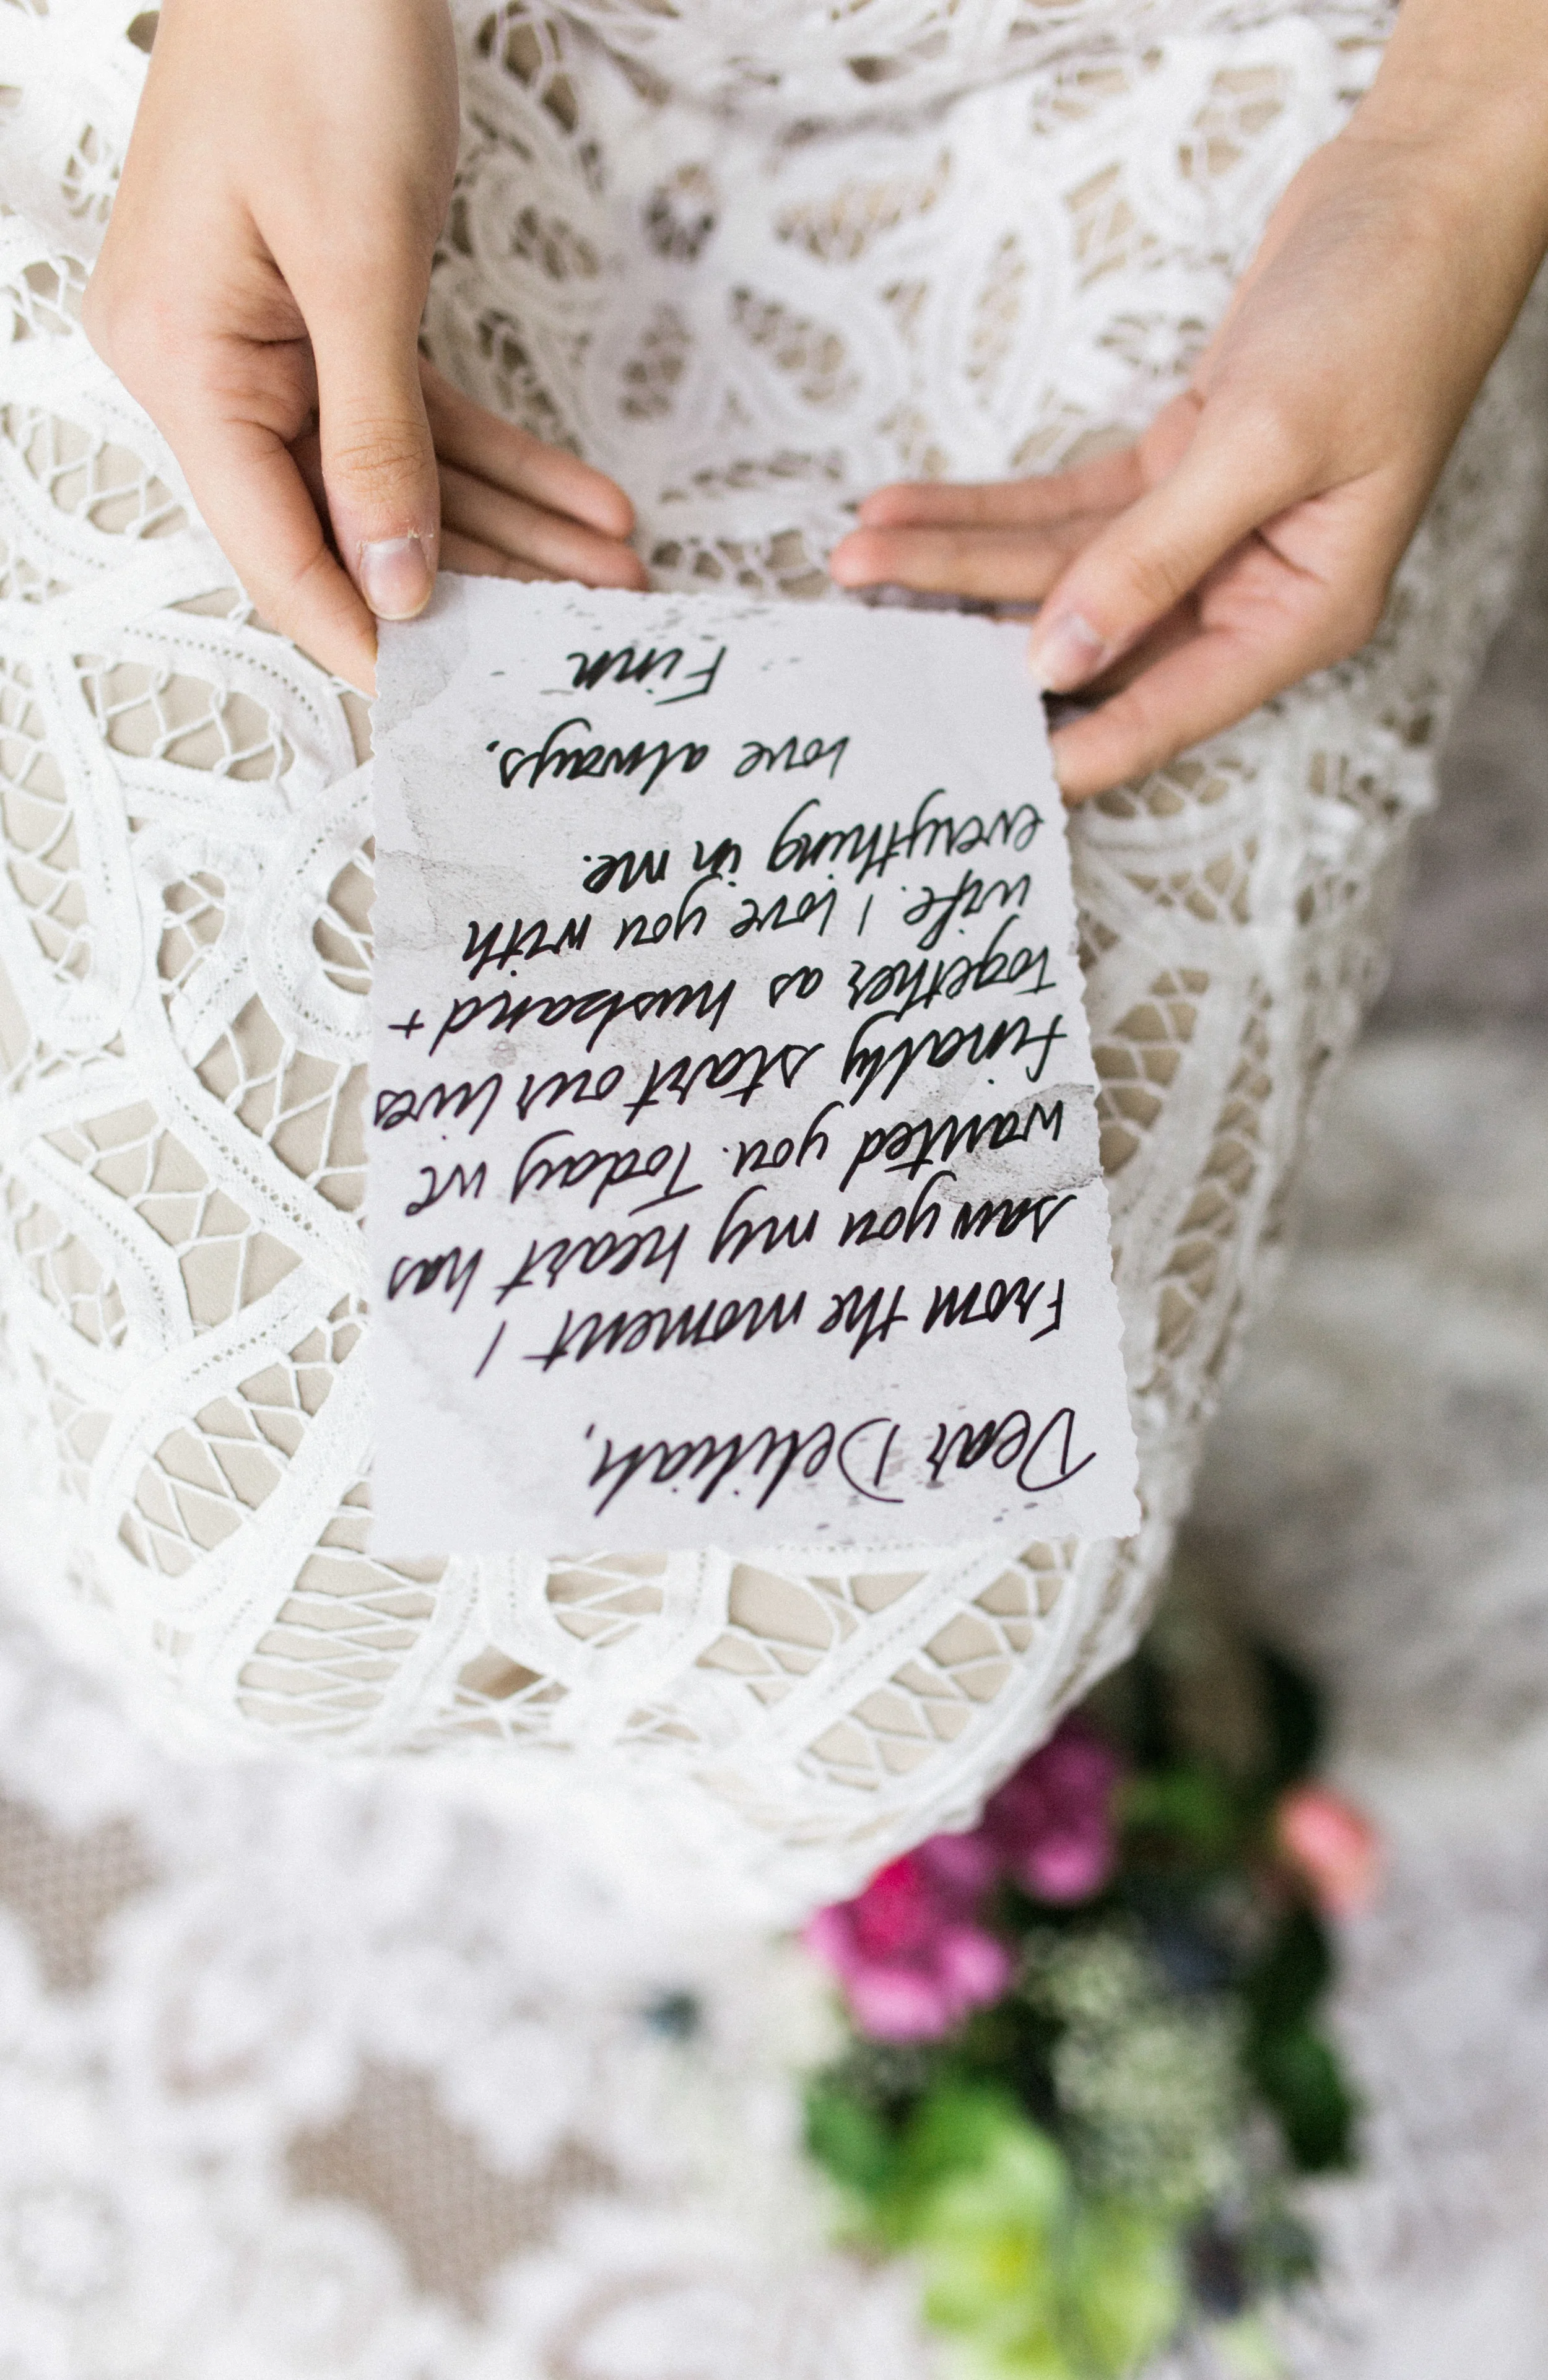 Dear Deliliah,
From the moment I
saw you my heart has
wanted you. Today we
finally start our lives
together as husband +
wife. I love you with
everything in me.
love always,
Finn